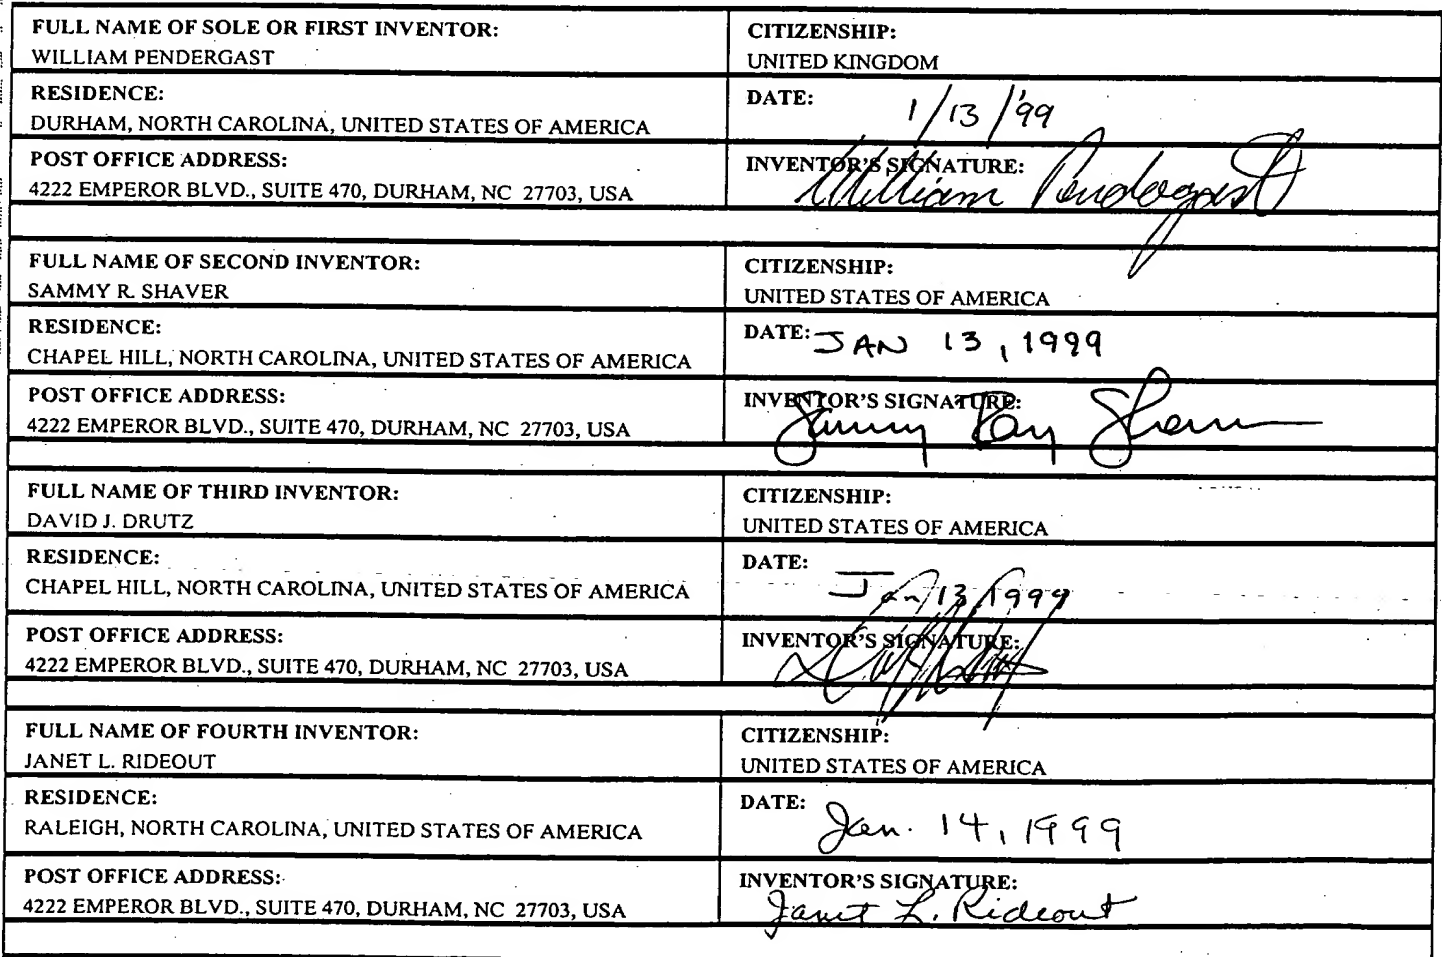 FULL NAME OF SOLE OR FIRST INVENTOR:
WILLIAM PENDERGAST
CITIZENSHIP:
UNITED KINGDOM
RESIDENCE:
DURHAM, NORTH CAROLINA, UNITED STATES OF AMERICA
DATE: 1/13/'99
POST OFFICE ADDRESS:
4222 EMPEROR BLVD., SUITE 470, DURHAM, NC 27703, USA
INVENTOR'S SIGNATURE:
William Pendergast
FULL NAME OF SECOND INVENTOR:
SAMMY R. SHAVER
CITIZENSHIP:
UNITED STATES OF AMERICA
RESIDENCE:
CHAPEL HILL, NORTH CAROLINA, UNITED STATES OF AMERICA
DATE: JAN 13, 1999
POST OFFICE ADDRESS:
4222 EMPEROR BLVD., SUITE 470, DURHAM, NC 27703, USA
INVENTOR'S SIGNATURE:
Sammy Ray Shaver
FULL NAME OF THIRD INVENTOR:
DAVID J. DRUTZ
CITIZENSHIP:
UNITED STATES OF AMERICA
RESIDENCE:
CHAPEL HILL, NORTH CAROLINA, UNITED STATES OF AMERICA
DATE: Jan 13, 1999
POST OFFICE ADDRESS:
4222 EMPEROR BLVD., SUITE 470, DURHAM, NC 27703, USA
INVENTOR'S SIGNATURE:
FULL NAME OF FOURTH INVENTOR:
JANET L. RIDEOUT
CITIZENSHIP:
UNITED STATES OF AMERICA
RESIDENCE:
RALEIGH, NORTH CAROLINA, UNITED STATES OF AMERICA
DATE: Jan. 14, 1999
POST OFFICE ADDRESS:
4222 EMPEROR BLVD., SUITE 470, DURHAM, NC 27703, USA
INVENTOR'S SIGNATURE:
Janet L. Rideout